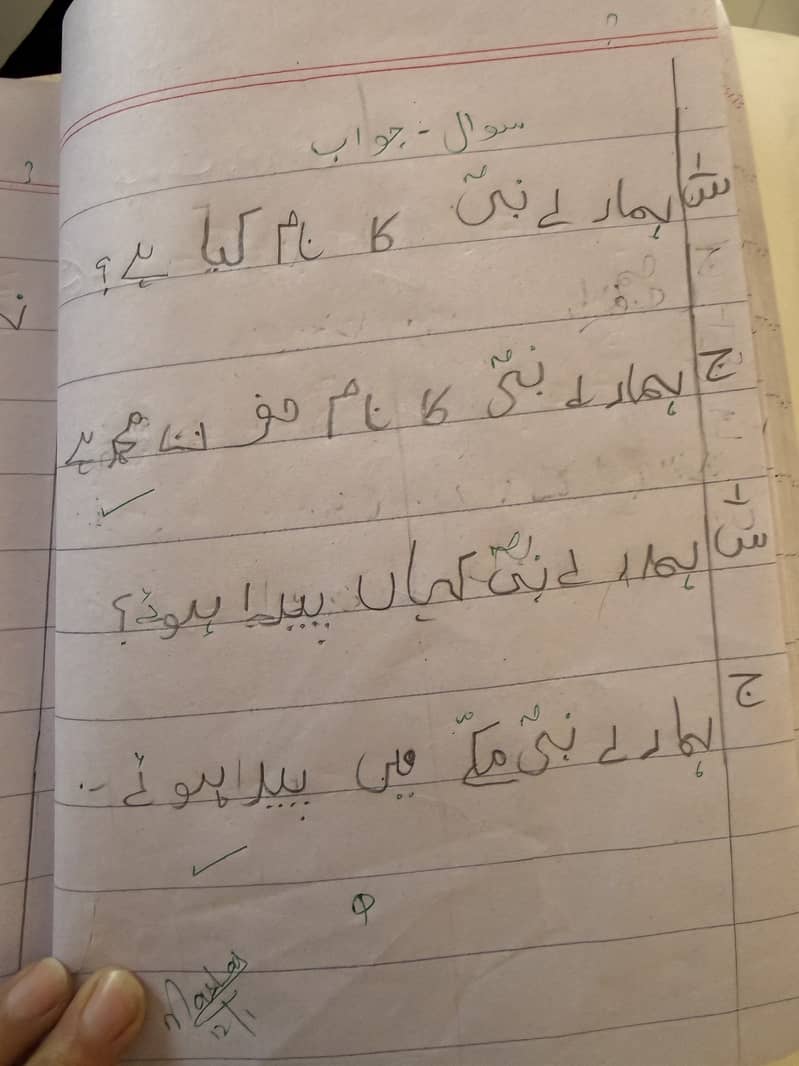 سوال - جواب
س- ہمارے نبیؐ کا نام کیا ہے؟
ج ہمارے نبیؐ کا نام محمدؐ ہے
س- ہمارے نبیؐ کہاں پیدا ہوئے؟
ج ہمارے نبیؐ مکّے میں پیدا ہوئے -
12/1